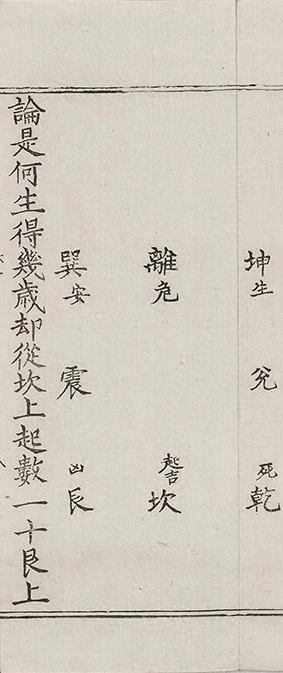 坤生 兊 死乾
離危 起吉坎
巽安 震 凶艮
論是何生得幾歳却從坎上起數一十艮上